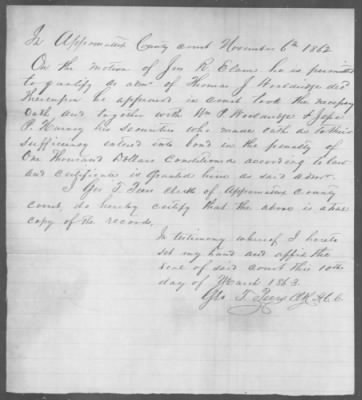 In Appomattox County court November 6th 1862
On the motion of Jno R Elam he is permitted
to qualify as admr of Thomas J Wooldridge decd
thereupon he appeared in court took the necessary
oath and together with Wm P. Wooldridge & Jopa
P. Harvey his securities who made oath as to their
sufficiency entered into bond in the penalty of
One thousand Dollars Conditioned according to law
and certificate is granted him as said admr.
I Geo T. Peers clerk of Appomattox County
court, do hereby certify that the above is a true
copy of the records.
In testimony whereof I hereto
set my hand and affix the
seal of said court this 10th
day of March 1863.
Geo T. Peers Clk A.C.C.